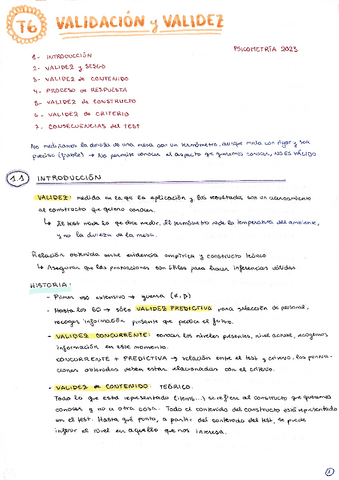 T6 VALIDACIÓN y VALIDEZ
PSICOMETRÍA 2023
1- INTRODUCCIÓN
2- VALIDEZ y SESGO
3- VALIDEZ de CONTENIDO
4- PROCESO de RESPUESTA
5- VALIDEZ de CONSTRUCTO
6- VALIDEZ de CRITERIO
7- CONSECUENCIAS del TEST
No mediríamos la dureza de una mesa con un termómetro, aunque mida con rigor y sea
preciso (fiable) → No permite conocer el aspecto que queremos conocer, NO ES VÁLIDO
1.1 INTRODUCCIÓN
VALIDEZ: medida en la que la aplicación y los resultados son un acercamiento
al constructo que quiero conocer.
↳ El test mide lo que dice medir. El termómetro mide la temperatura del ambiente,
y no la dureza de la mesa.
Relación obtenida entre evidencia empírica y constructo teórico
↳ Asegurar que las puntuaciones son útiles para hacer inferencias válidas
HISTORIA:
- Primer uso extensivo → guerra (α, β)
- Hasta los 60 → sólo VALIDEZ PREDICTIVA para selección de personal,
recoges información presente que predice el futuro.
- VALIDEZ CONCURRENTE: conocer los niveles presentes, nivel actual, recogemos
información en este momento.
CONCURRENTE + PREDICTIVA → relación entre el test y criterio, las puntua-
ciones obtenidas deben estar relacionadas con el criterio.
- VALIDEZ de CONTENIDO TEÓRICO.
Todo lo que está representado (ítems...) se refiere al constructo que queremos
conocer y no a otra cosa. Todo el contenido del constructo está representado
en el test. Hasta qué punto, a partir del contenido del test, se puede
inferir el nivel en aquello que nos interesa.
1